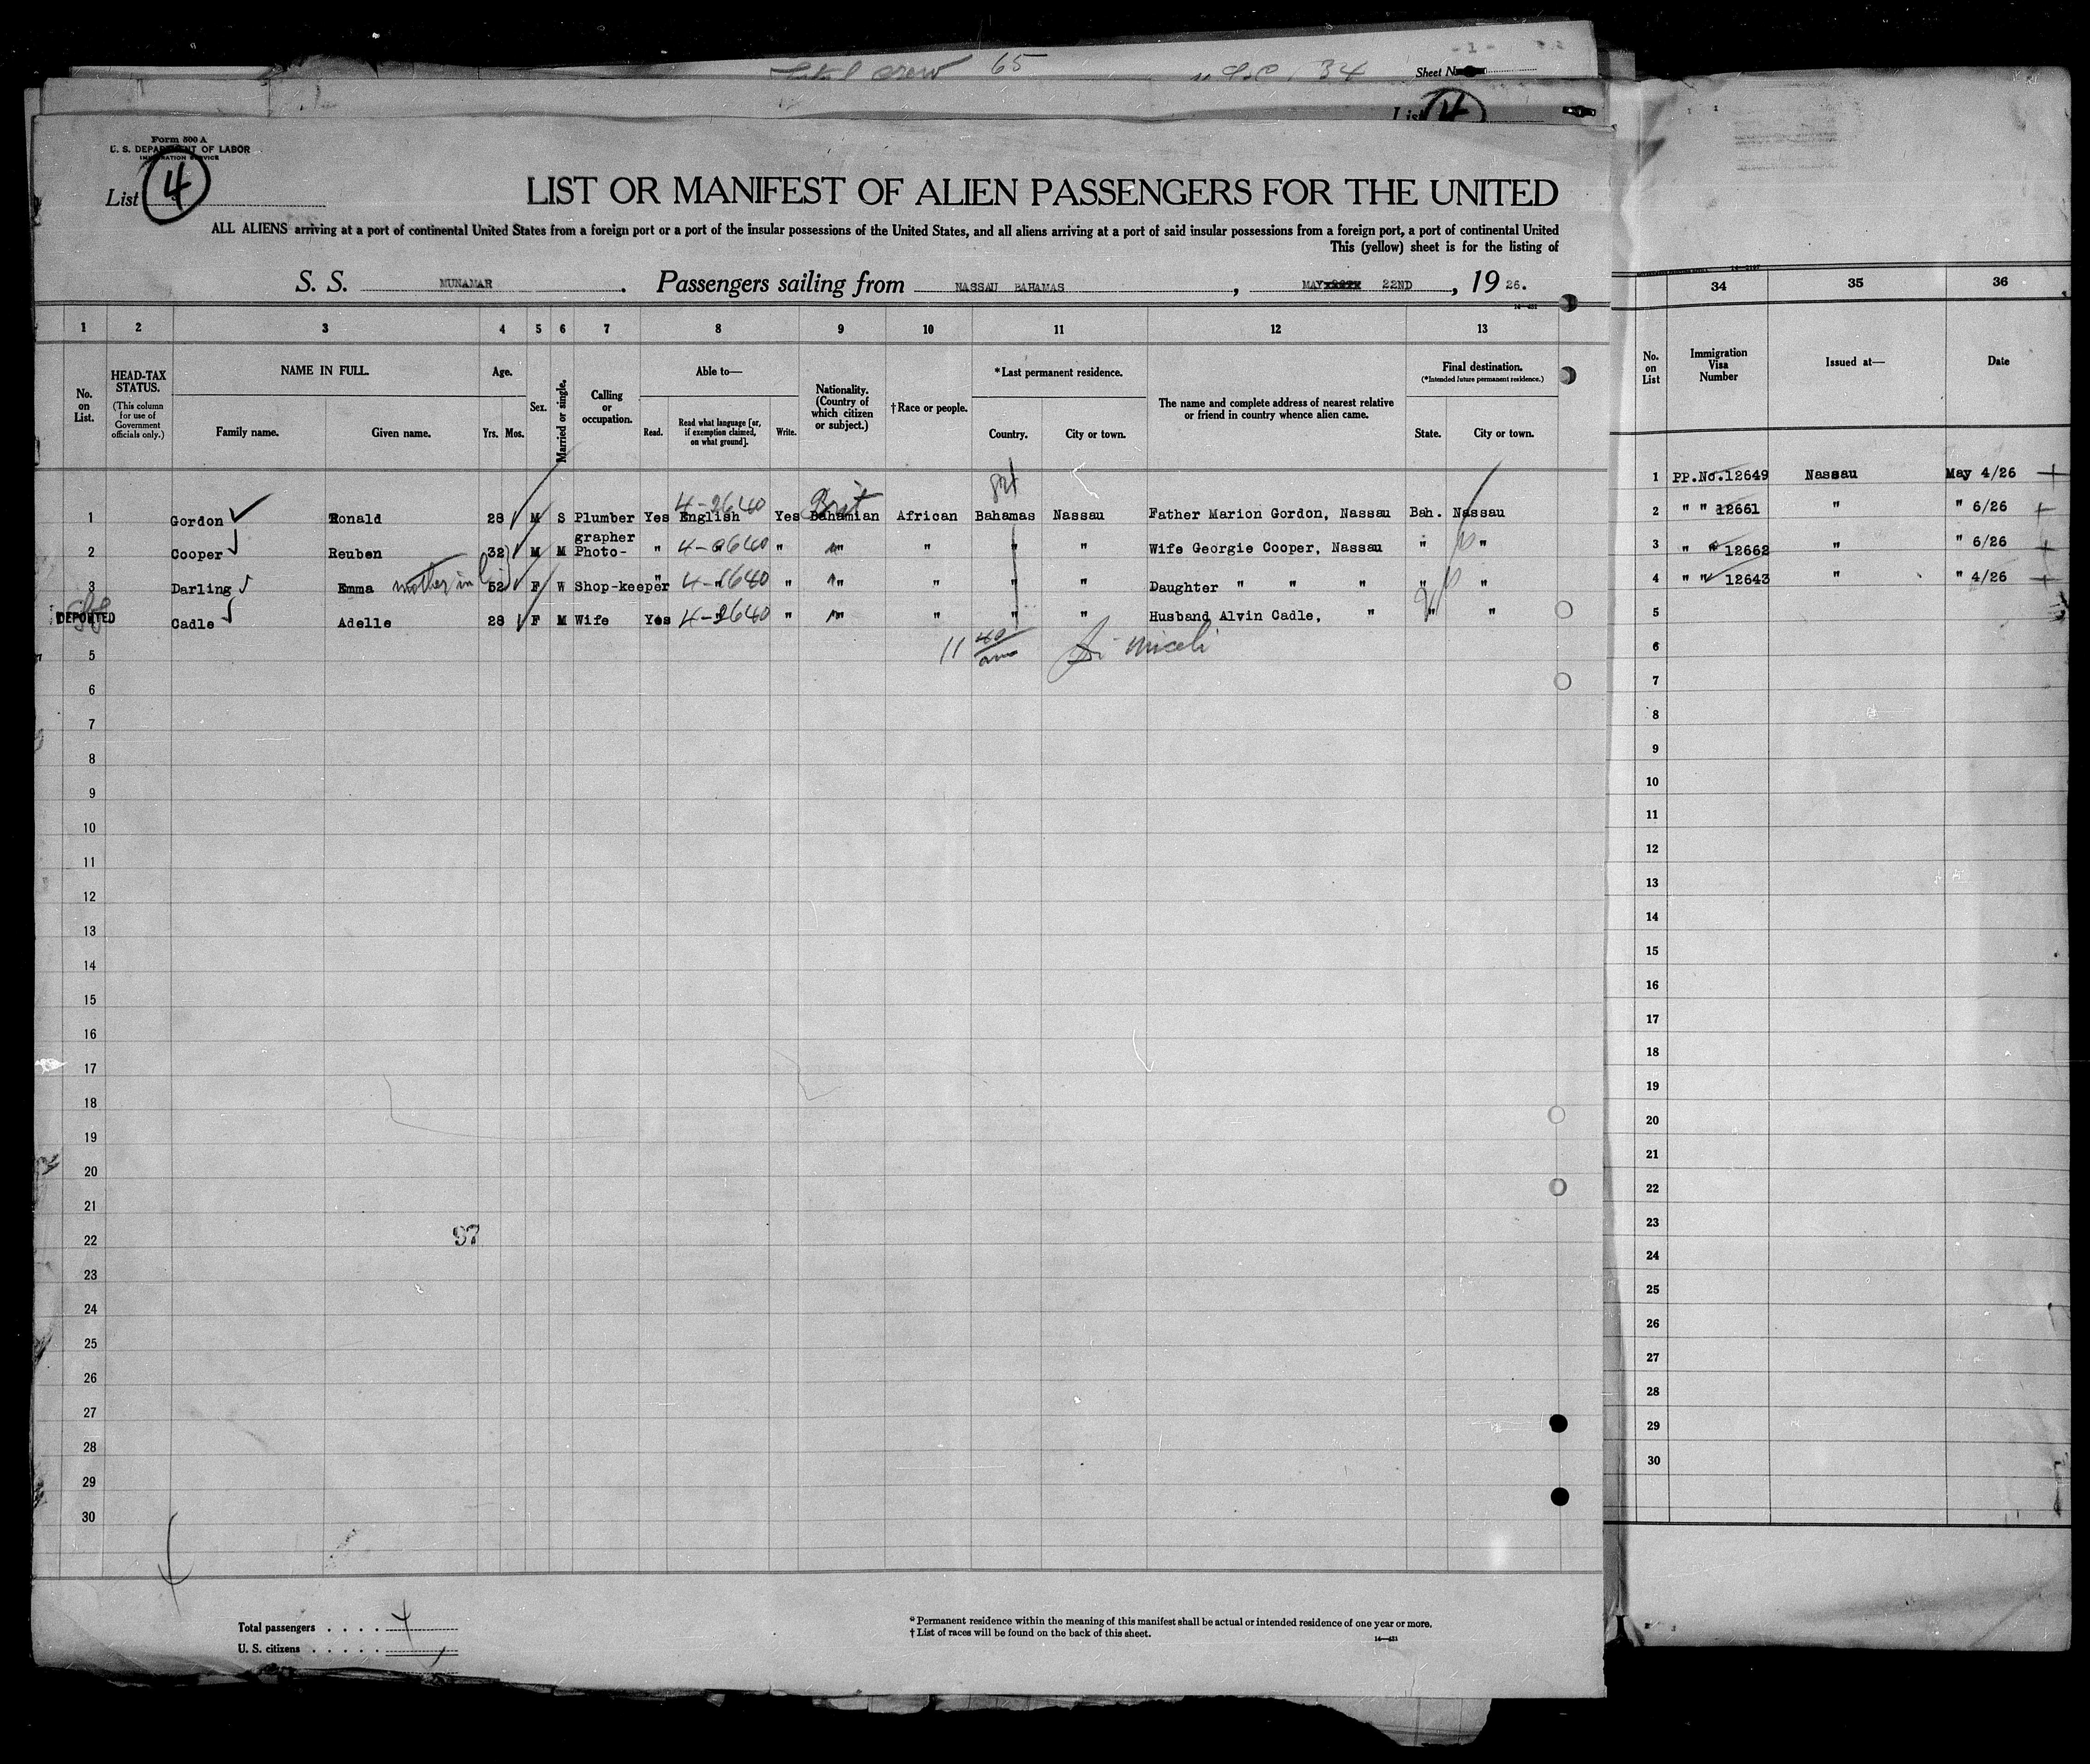 Crew 65 34 Sheet No.
List 4
Form 500 A
U. S. DEPARTMENT OF LABOR
IMMIGRATION SERVICE
List 4
LIST OR MANIFEST OF ALIEN PASSENGERS FOR THE UNITED
ALL ALIENS arriving at a port of continental United States from a foreign port or a port of the insular possessions of the United States, and all aliens arriving at a port of said insular possessions from a foreign port, a port of continental United
This (yellow) sheet is for the listing of
S. S. MUNAMAR. Passengers sailing from NASSAU BAHAMAS, MAY 22ND, 1926.
1 2 3 4 5 6 7 8 9 10 11 12 13
No. on List.
HEAD-TAX STATUS.
(This column for use of Government officials only.)
NAME IN FULL.
Family name. Given name.
Age.
Yrs. Mos.
Sex.
Married or single.
Calling or occupation.
Able to—
Read.
Read what language [or, if exemption claimed, on what ground].
Write.
Nationality. (Country of which citizen or subject.)
†Race or people.
*Last permanent residence.
Country. City or town.
The name and complete address of nearest relative or friend in country whence alien came.
Final destination.
(*Intended future permanent residence.)
State. City or town.
4-2640 Brit
1 Gordon Ronald 28 M S Plumber Yes English Yes Bahamian African Bahamas Nassau Father Marion Gordon, Nassau Bah. Nassau
grapher
2 Cooper Reuben 32 M M Photo- " 4-2640 " " " " " Wife Georgie Cooper, Nassau " "
3 Darling Emma mother in 52 F W Shop-keeper " 4-2640 " " " " " Daughter " " " " "
DEPORTED Cadle Adelle 28 F M Wife Yes 4-2640 " " " " " Husband Alvin Cadle, " " "
11 40/am Miceli
5
6
7
8
9
10
11
12
13
14
15
16
17
18
19
20
21
22
97
23
24
25
26
27
28
29
30
Total passengers . . . . 4
U. S. citizens . . . . .
* Permanent residence within the meaning of this manifest shall be actual or intended residence of one year or more.
† List of races will be found on the back of this sheet.
14—421
34 35 36
No. on List
Immigration Visa Number
Issued at—
Date
1 PP.No.12649 Nassau May 4/26
2 " " 12661 " " 6/26
3 " " 12662 " " 6/26
4 " " 12643 " " 4/26
5
6
7
8
9
10
11
12
13
14
15
16
17
18
19
20
21
22
23
24
25
26
27
28
29
30